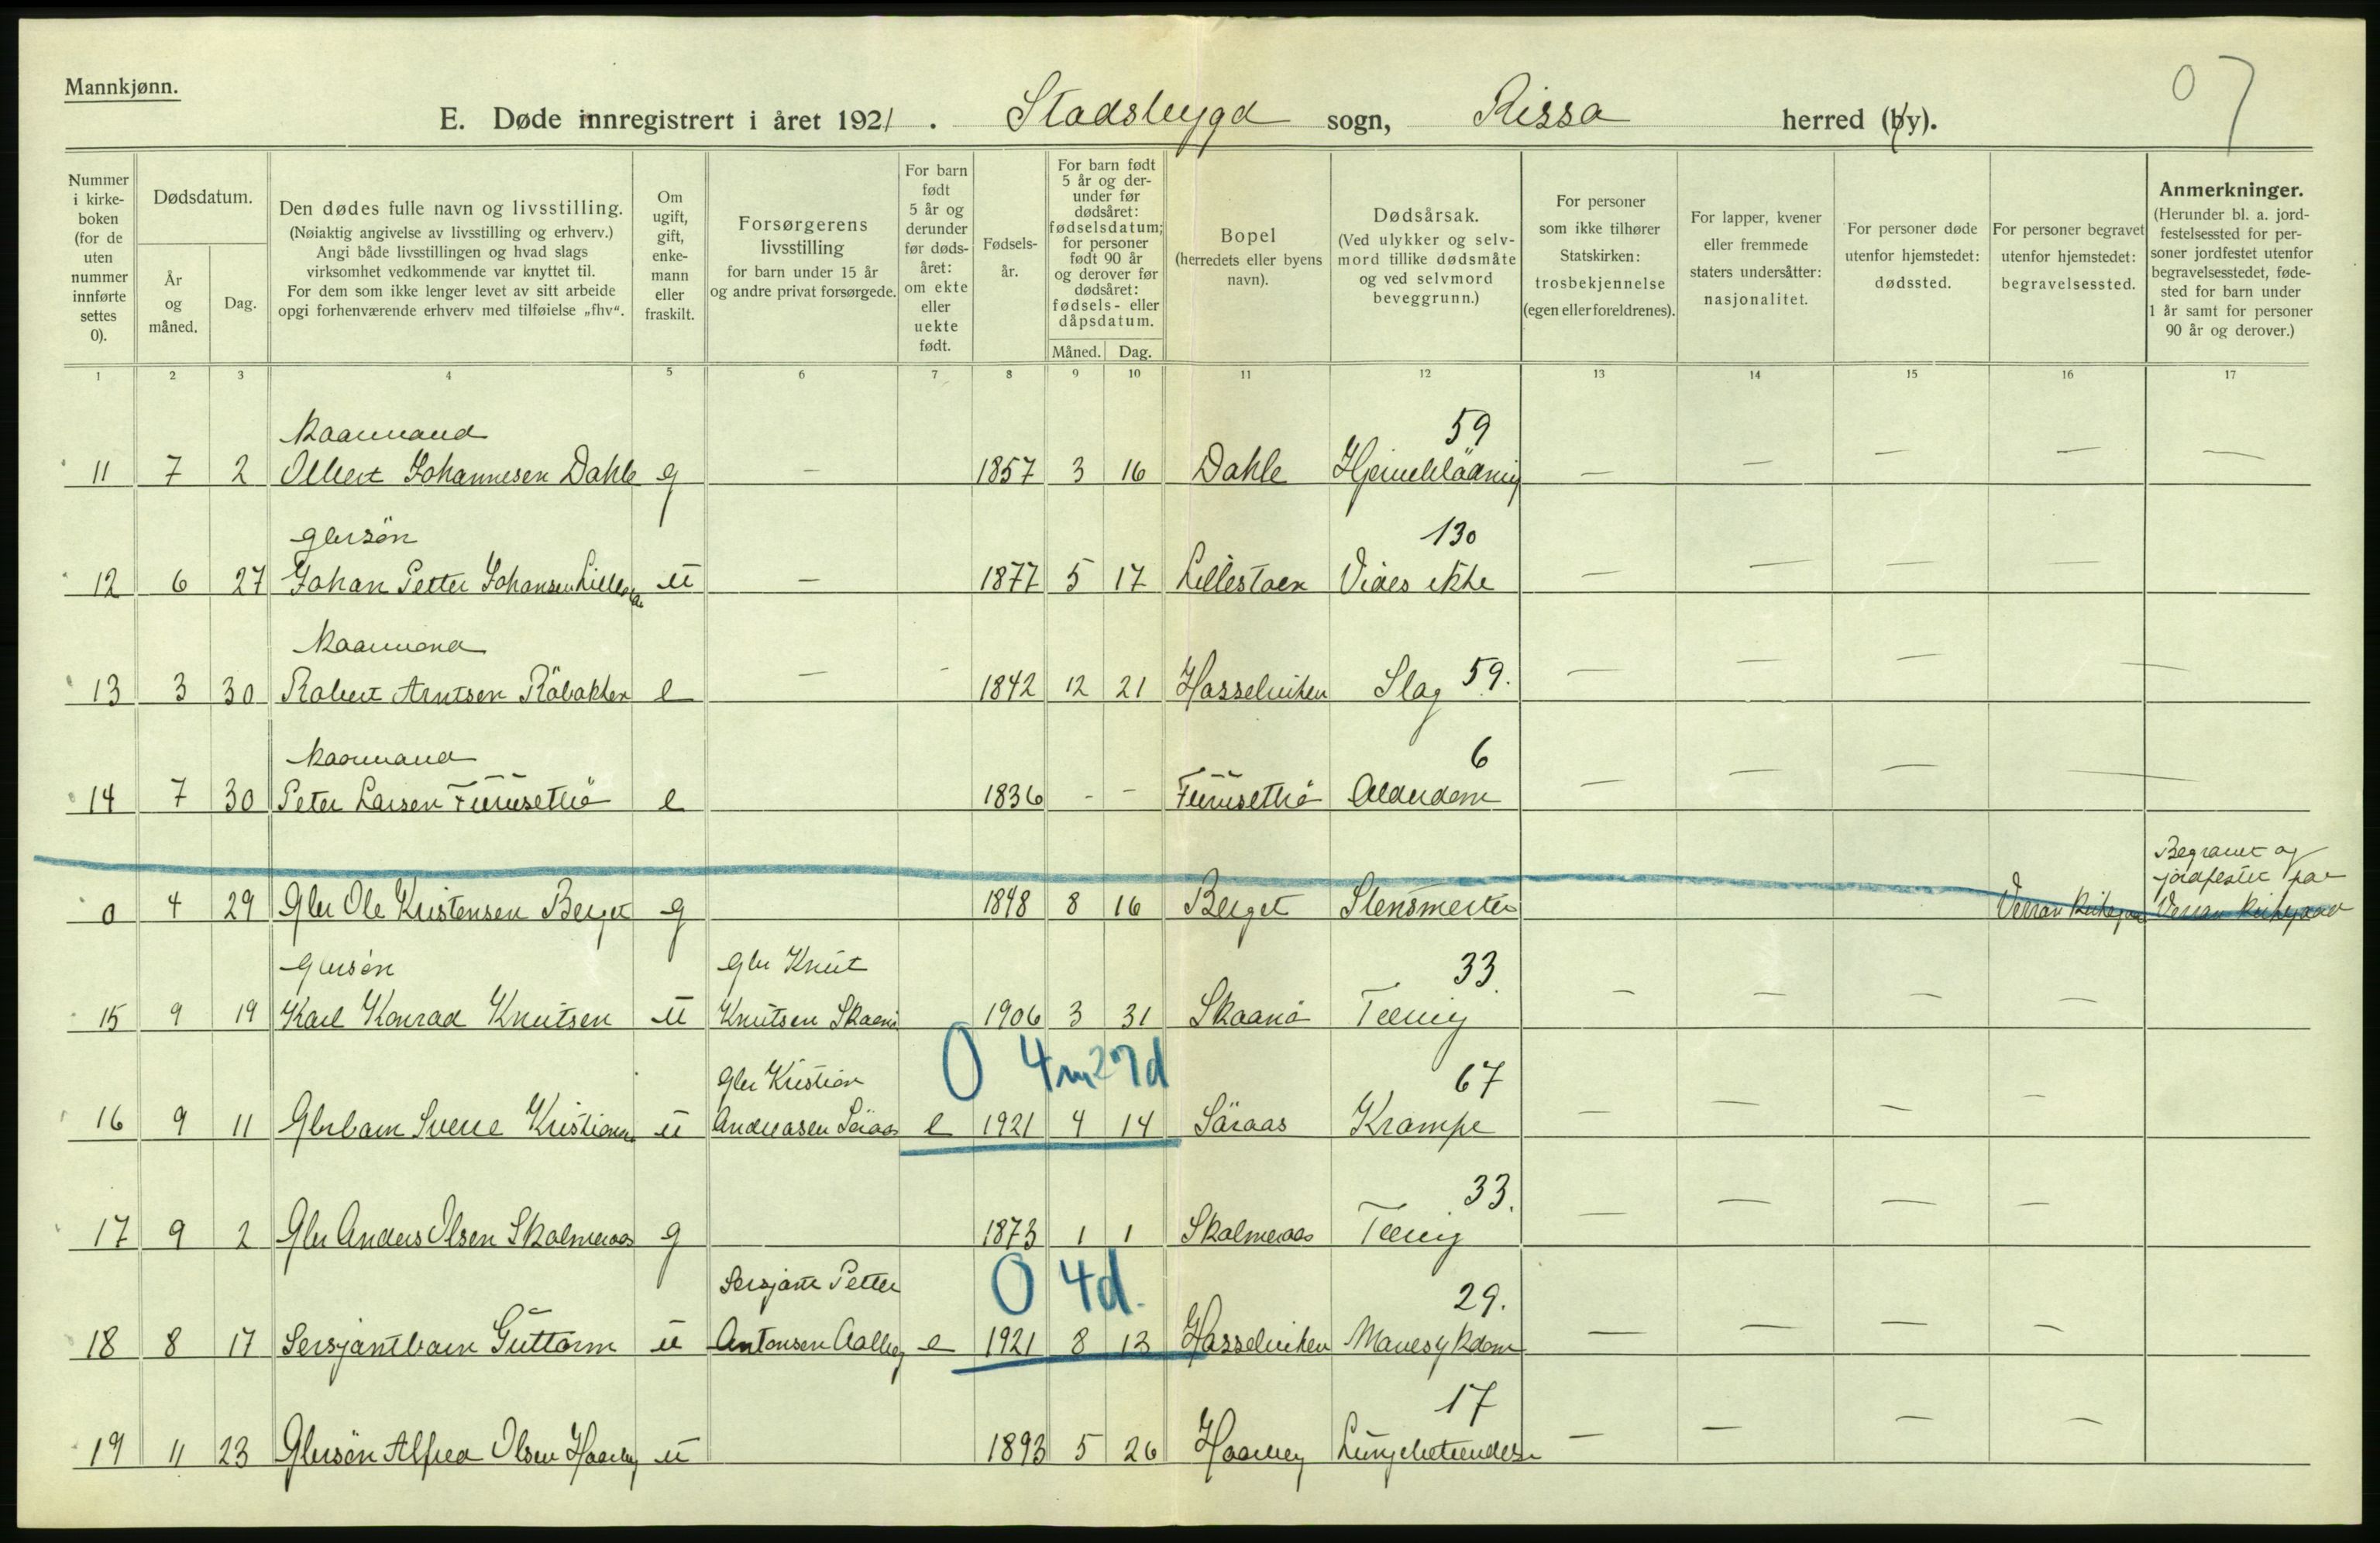 Mannkjønn.
07
E. Døde innregistrert i året 1921. Stadsbygd sogn, Rissa herred (by).
Nummer i kirkeboken (for de uten nummer innførte settes 0).
Dødsdatum.
År og måned.
Dag.
Den dødes fulle navn og livsstilling.
(Nøiaktig angivelse av livsstilling og erhverv.)
Angi både livsstillingen og hvad slags
virksomhet vedkommende var knyttet til.
For dem som ikke lenger levet av sitt arbeide
opgi forhenværende erhverv med tilføielse „fhv“.
Om ugift, gift, enkemann eller fraskilt.
Forsørgerens livsstilling
for barn under 15 år
og andre privat forsørgede.
For barn født 5 år og derunder før dødsåret: om ekte eller uekte født.
Fødselsår.
For barn født 5 år og derunder før dødsåret: fødselsdatum; for personer født 90 år og derover før dødsåret: fødsels- eller dåpsdatum.
Måned. Dag.
Bopel
(herredets eller byens navn).
Dødsårsak.
(Ved ulykker og selvmord tillike dødsmåte og ved selvmord beveggrunn.)
For personer som ikke tilhører Statskirken: trosbekjennelse (egen eller foreldrenes).
For lapper, kvener eller fremmede staters undersåtter: nasjonalitet.
For personer døde utenfor hjemstedet: dødssted.
For personer begravet utenfor hjemstedet: begravelsessted.
Anmerkninger.
(Herunder bl. a. jordfestelsessted for personer jordfestet utenfor begravelsesstedet, fødested for barn under 1 år samt for personer 90 år og derover.)
1 2 3 4 5 6 7 8 9 10 11 12 13 14 15 16 17
Kaarmand 59
11 7 2 Olbert Johannesen Dahle g — 1857 3 16 Dahle Hjerneblødning — — — — —
gbrsøn 130
12 6 27 Johan Petter Johansen Lillestaen u — 1877 5 17 Lillestaen Vides ikke — — — —
Kaarmand
13 3 30 Robert Arntsen Råbakken e — - 1842 12 21 Hasselviken Slag 59. — — — —
Kaarmand 6
14 7 30 Peter Larsen Furusethø e 1836 - - Furusethø Alderdom — — — —
Begravet og
jordfestet paa
0 4 29 Gbr Ole Kristensen Berget g 1848 8 16 Berget Stensmerter Verran Kirkegaard Verran Kirkegaard
Gbrsøn Gbr Knut 33.
15 9 19 Karl Konrad Knutsen u Knutsen Skaanø 1906 3 31 Skaanø Tæring — — — —
0 4m27d
Gbr Kristian 67
16 9 11 Gbrbarn Sverre Kristiansen u Andreasen Søraas e 1921 4 14 Søraas Krampe — — — —
33.
17 9 2 Gbr Anders Olsen Skalmeraas g 1873 1 1 Skalmeraas Tæring — — — —
0 4d.
Sersjant Petter 29.
18 8 17 Sersjantbarn Guttorm u Antonsen Aalberg e 1921 8 13 Hasselviken Mavesykdom — — — —
17
19 11 23 Gbrsøn Alfred Olsen Haarberg u 1893 5 26 Haarberg Lungebetændelse — — — —